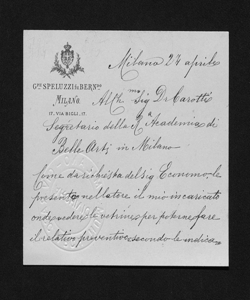 Milano 24 aprile
G.ᵖᵖᵉ SPELUZZI di BERN.ᵈᵒ
MILANO
17, VIA BIGLI, 17
All'Ill.ᵐᵒ Sig D. Carotti
Segretario della R.ª Academia di
Belle Arti in Milano
Come da richiesta del sig Economo, le
presento nel latere il mio incaricato
onde vedere le vetrine per poterne fare
il relativo preventivo secondo le indica-